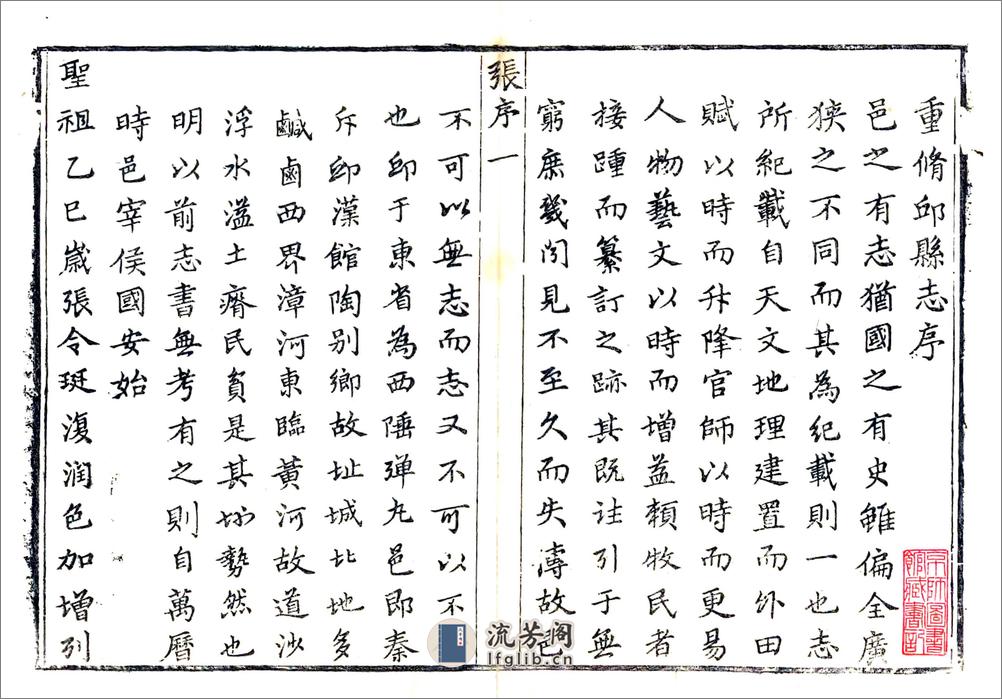 重脩邱縣志序
邑之有志猶國之有史雖偏全廣
狹之不同而其為紀載則一也志
所紀載自天文地理建置而外田
賦以時而升降官師以時而更易
人物藝文以時而增益頼牧民者
接踵而纂訂之跡其既往引于無
窮庶幾聞見不至久而失溥故邑
張序 一
不可以無志而志又不可以不
也邱于東省為西陲弹丸邑即秦
斥邱漢館陶别鄉故址城北地多
鹹鹵西界漳河東臨黃河故道沙
浮水溢土瘠民貧是其坳勢然也
明以前志書無考有之則自萬曆
時邑宰侯國安始
聖祖乙巳嵗張令珽復润色加增列
京師圖書館藏書記
流芳阁
lfglib.cn